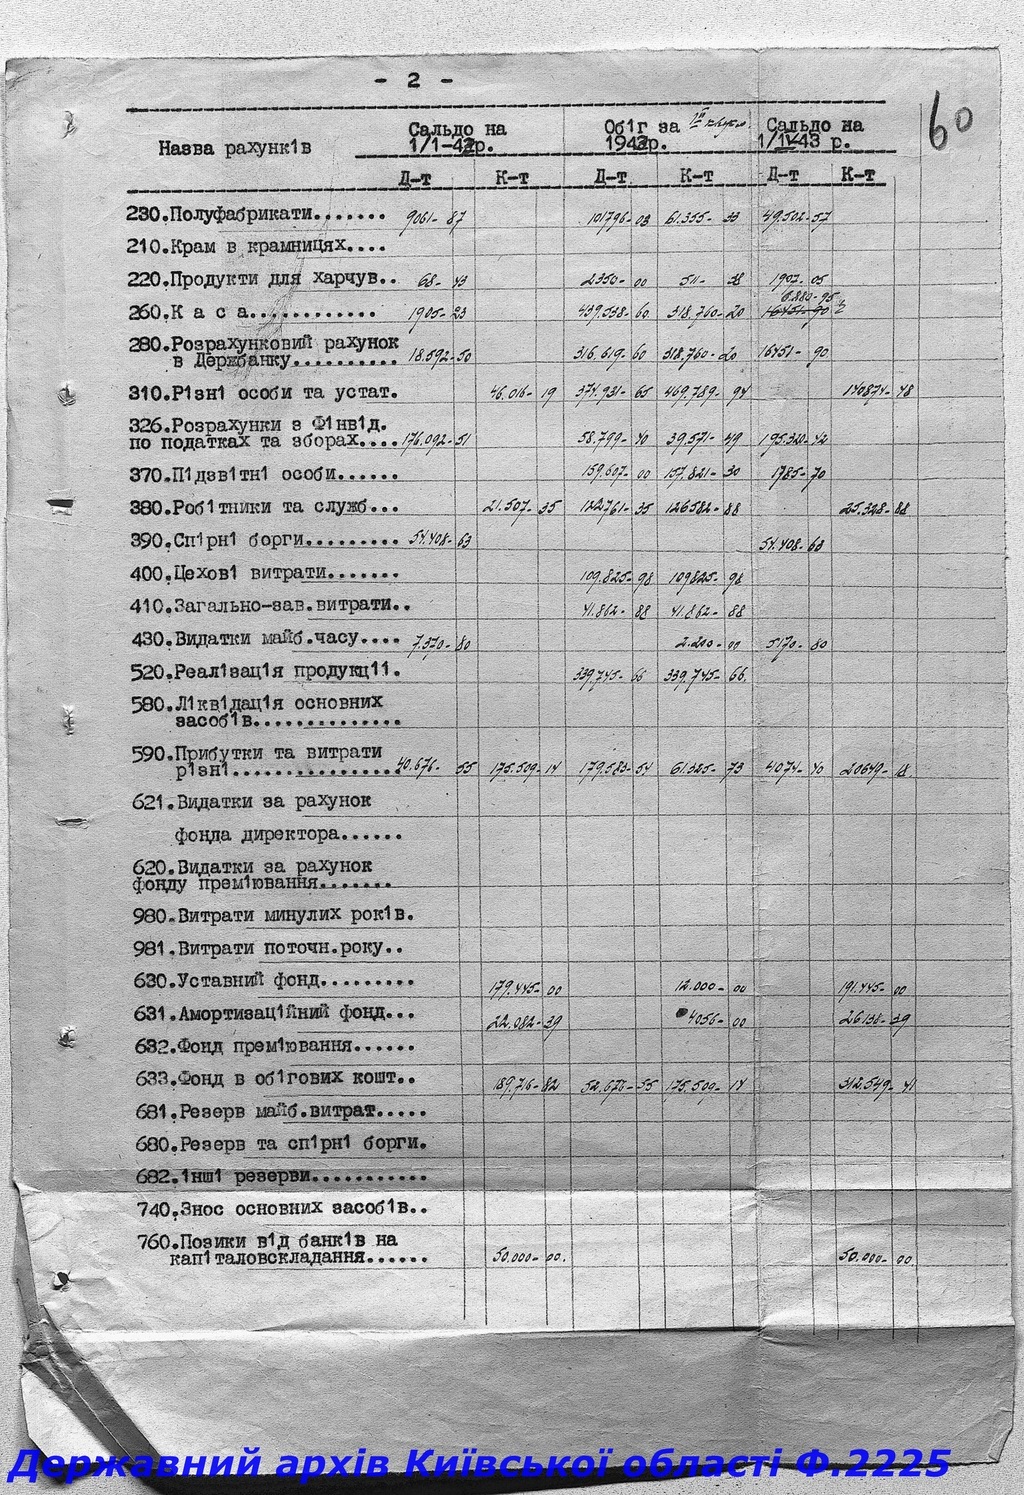 - 2 -
60
Назва рахунк1в Сальдо на 1/1-43р. Об1г за 1й кварт. 1943р. Сальдо на 1/IV-43 р.
Д-т К-т Д-т К-т Д-т К-т
230.Полуфабрикати....... 9061- 87 101796- 03 61.355- 33 49.502- 57
210.Крам в крамницях....
220.Продукти для харчув.. 68- 43 2350- 00 511- 38 1907- 05
6.880-95
260.К а с а............ 1905- 23 439.538- 60 318.760- 20 16451- 90
280.Розрахунковий рахунок
в Держбанку.......... 18.592- 50 316.619- 60 318.760- 20 16451- 90
310.Р1зн1 особи та устат. 46.016- 19 374.931- 65 469.789- 94 140874- 48
326.Розрахунки з Ф1нв1д.
по податках та зборах.... 176.092- 51 58.799- 40 39.571- 49 195.320- 42
370.П1дзв1тн1 особи...... 159.607- 00 157.821- 30 1785- 70
380.Роб1тники та служб... 21.507- 35 122761- 35 126582- 88 25.328- 88
390.Сп1рн1 борги......... 54.408- 63 54.408- 63
400.Цехов1 витрати....... 109.825- 98 109825- 98
410.Загально-зав.витрати.. 41.862- 88 41.862- 88
430.Видатки майб.часу.... 7.370- 80 2.200- 00 5170- 80
520.Реал1зац1я продукц11. 339.745- 66 339.745- 66.
580.Л1кв1дац1я основних
засоб1в...............
590.Прибутки та витрати
р1зн1................. 40.676- 55 175.509- 14 179.583- 54 61.325- 73 4074- 40 20649- 18
621.Видатки за рахунок
фонда директора......
620.Видатки за рахунок
фонду прем1ювання.......
980.Витрати минулих рок1в.
981.Витрати поточн.року..
630.Уставний фонд......... 179.445- 00 12.000- 00 191.445- 00
631.Амортизац1йний фонд... 22.082- 39 4056- 00 26.138- 39
632.Фонд прем1ювання......
633.Фонд в об1гових кошт.. 189.716- 82 52.676- 55 175.509- 14 312.549- 41
681.Резерв майб.витрат.....
680.Резерв та сп1рн1 борги.
682.1нш1 резерви...........
740.Знос основних засоб1в..
760.Позики в1д банк1в на
кап1таловскладання...... 50.000- 00. 50.000- 00
Державний архів Київської області Ф.2225